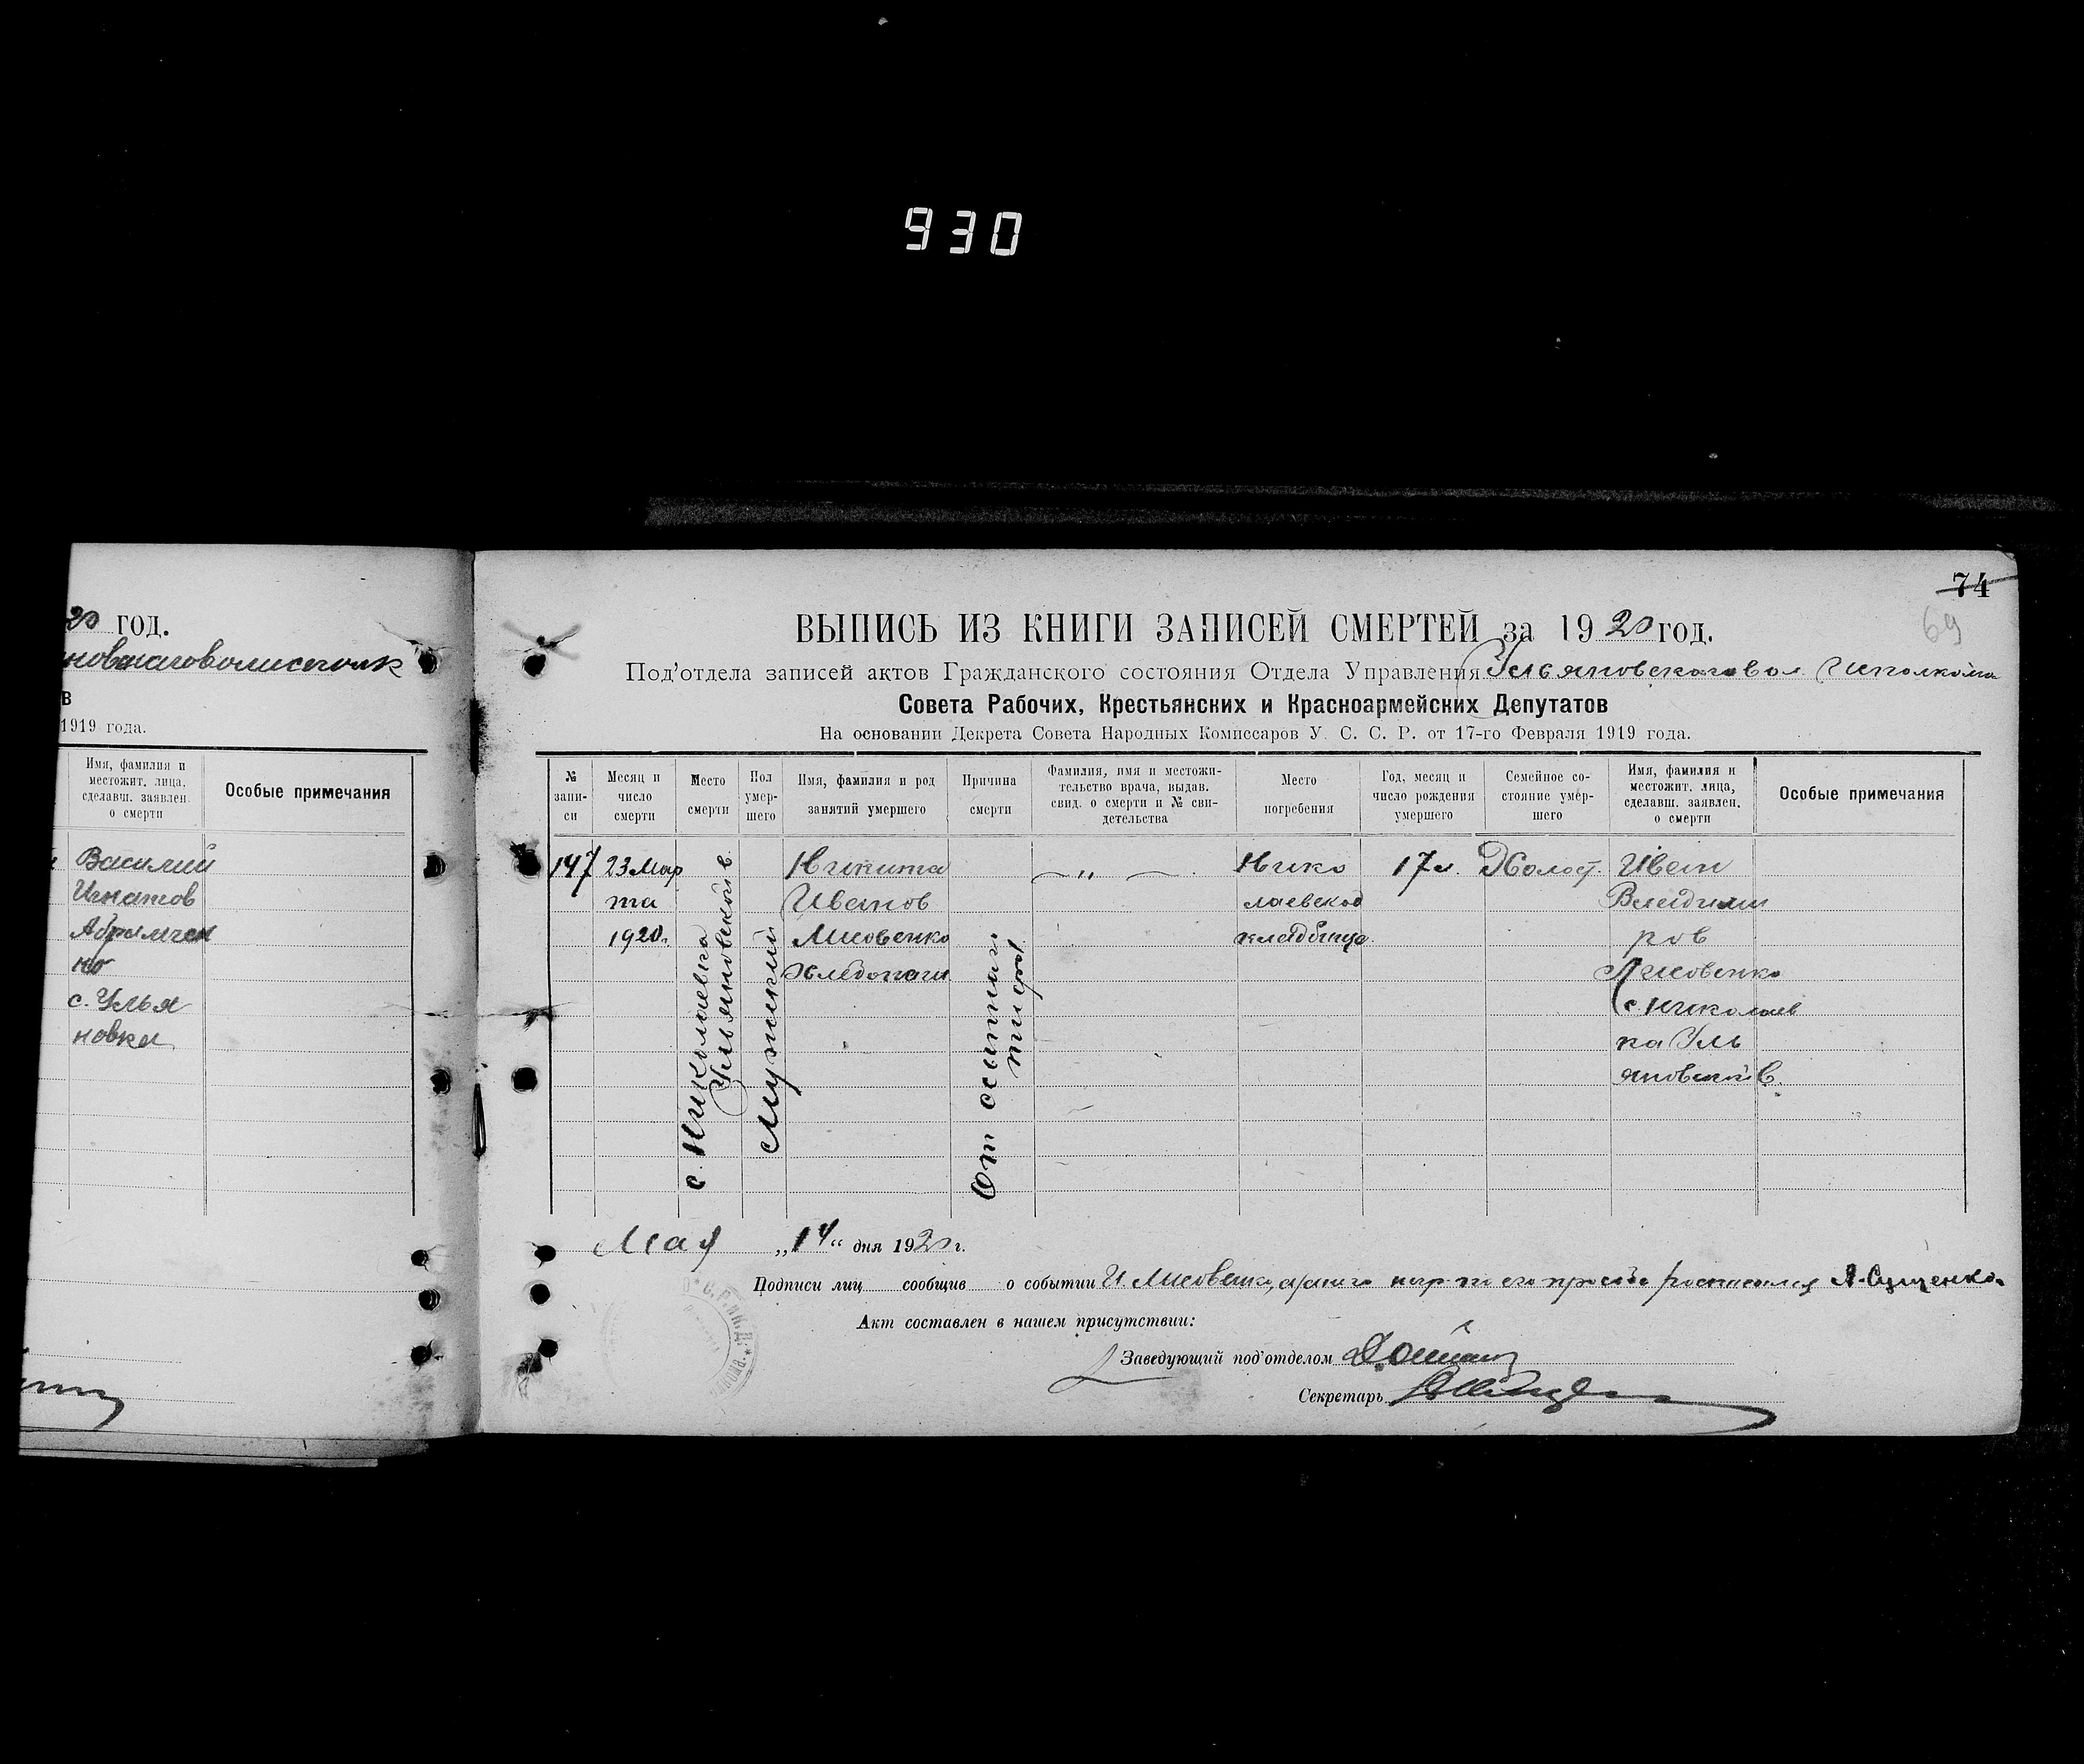 930
20 год.
новскаговолисполк
в
1919 года.
Имя, фамилия и
местожит. лица,
сделавш. заявлен.
о смерти
Особые примечания
Василий
Игнатов
Абрамчен
ко
с. Улья
новка
74
69
ВЫПИСЬ ИЗ КНИГИ ЗАПИСЕЙ СМЕРТЕЙ за 1920 год.
Под'отдела записей актов Гражданского состояния Отдела Управления Ульяновскаговол. Исполкома
Совета Рабочих, Крестьянских и Красноармейских Депутатов
На основании Декрета Совета Народных Комиссаров У. С. С. Р. от 17-го Февраля 1919 года.
№
запи-
си
Месяц и
число
смерти
Место
смерти
Пол
умер-
шего
Имя, фамилия и род
занятий умершего
Причина
смерти
Фамилия, имя и местожи-
тельство врача, выдав.
свид. о смерти и № сви-
детельства
Место
погребения
Год, месяц и
число рождения
умершего
Семейное со-
стояние умер-
шего
Имя, фамилия и
местожит. лица,
сделавш. заявлен.
о смерти
Особые примечания
147
23 Мар
та
1920г.
с. Николаевка
Ульяновской в.
Мужской
Никита
Иванов
Лисовенко
хлебопаш
От сыпного
тифа
— „ —
Нико
лаевском
кладбище
17 л.
Холост.
Иван
Владими
ров
Лисовенко
с. Николаев
ка Уль
яновской В.
Мая „14“ дня 1920 г.
Подписи лиц сообщив о событии И. Лисовенко, а его по просьбе росписался А. Сущенко
Акт составлен в нашем присутствии:
Заведующий под'отделом
Секретарь